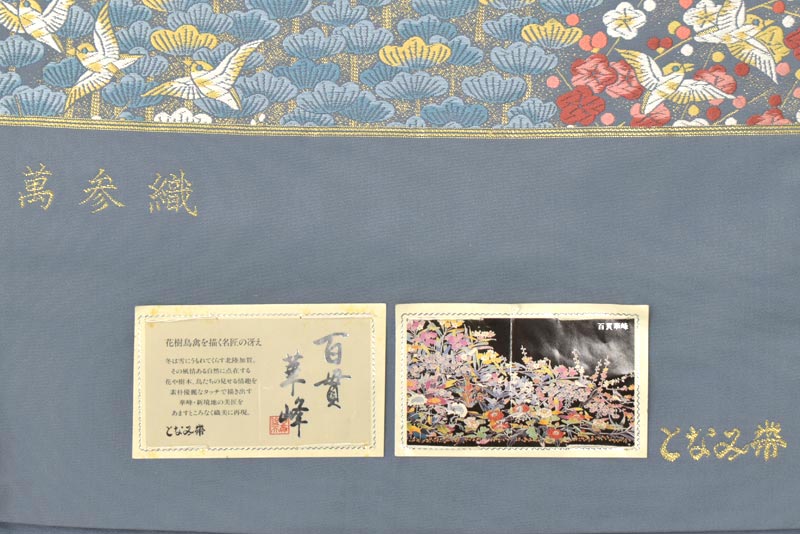 萬参織
花樹鳥禽を描く名匠の冴え
冬は雪にうもれてくらす北陸加賀。
その風情ある自然に点在する
花や樹木、鳥たちの見せる情趣を
素朴優麗なタッチで描き出す
華峰・新境地の美匠を
あますところなく織美に再現。
となみ帯
百貫
華峰
百貫華峰
となみ帯